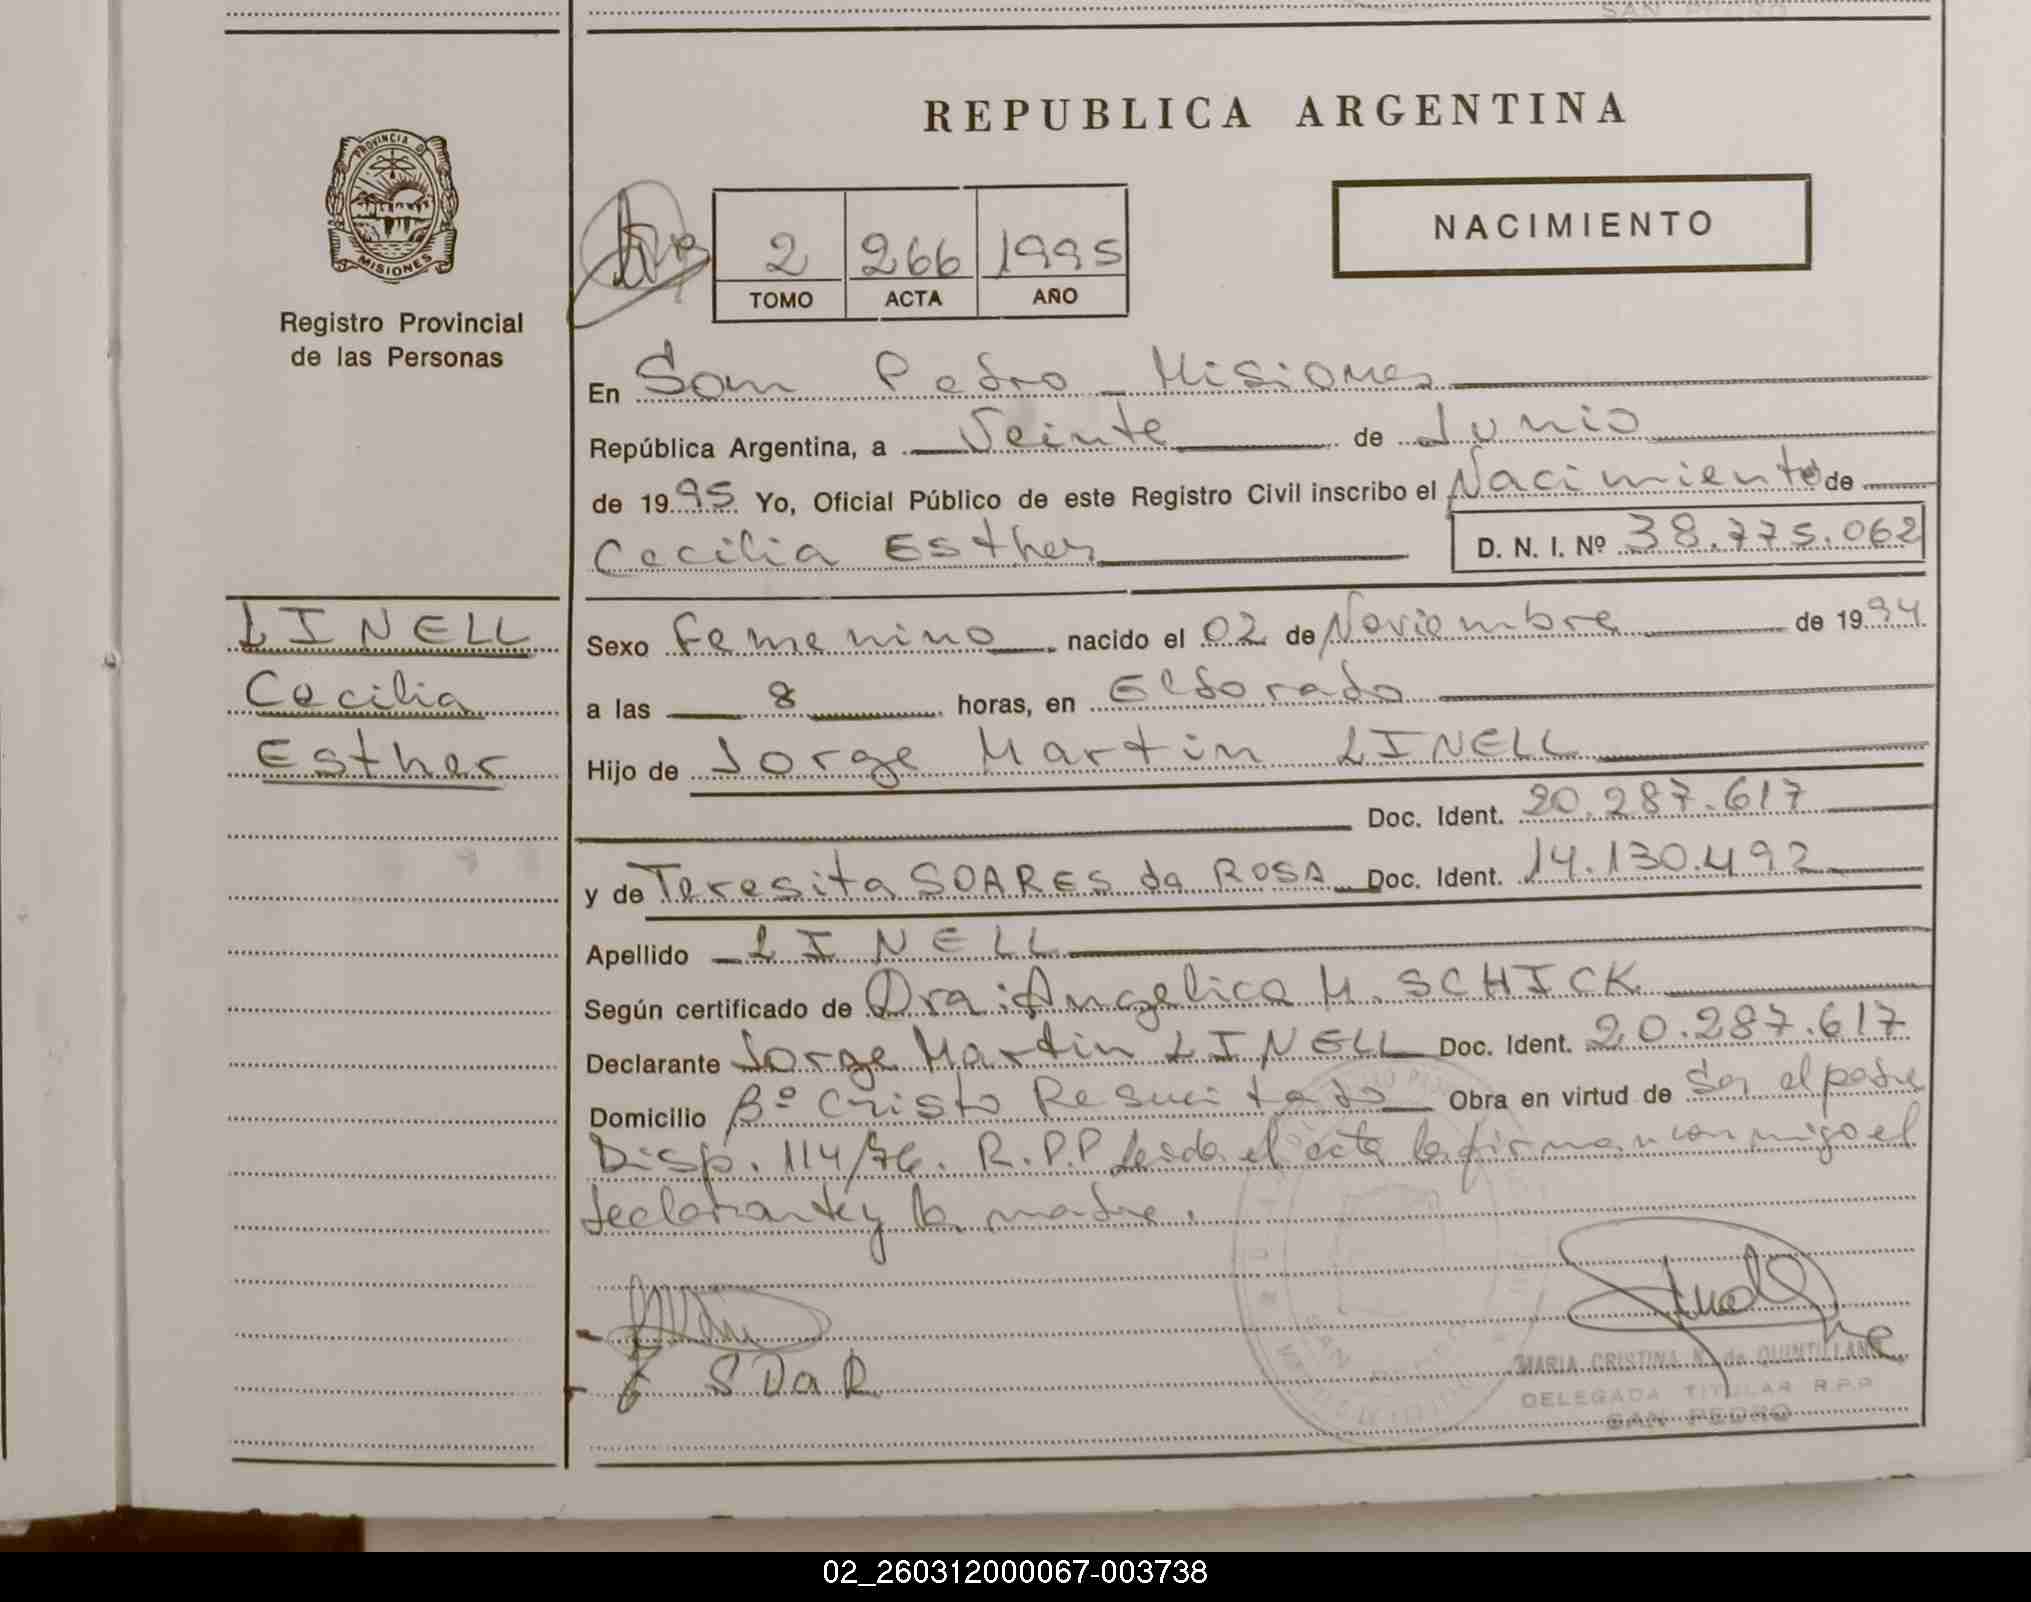 SAN PEDRO
REPUBLICA ARGENTINA
PROVINCIA DE
MISIONES
Registro Provincial
de las Personas
2 266 1995
TOMO ACTA AÑO
NACIMIENTO
En San Pedro - Misiones
República Argentina, a Veinte de Junio
de 1995 Yo, Oficial Público de este Registro Civil inscribo el Nacimiento de
Cecilia Esther D. N. I. Nº 38.775.062
LINELL
Cecilia
Esther
Sexo Femenino nacido el 02 de Noviembre de 1994
a las 8 horas, en Eldorado
Hijo de Jorge Martin LINELL
Doc. Ident. 20.287.617
y de Teresita SOARES da ROSA Doc. Ident. 14.130.492
Apellido LINELL
Según certificado de Dra: Angelica M. SCHICK
Declarante Jorge Martin LINELL Doc. Ident. 20.287.617
Domicilio Bº Cristo Resucitado Obra en virtud de Ser el padre
Disp. 114/76. R.P.P leida el acta la firman conmigo el
declarante y la madre.
S Da R
MARIA CRISTINA N. de QUINTILLAN
DELEGADA TITULAR R.P.P
SAN PEDRO
02_260312000067-003738